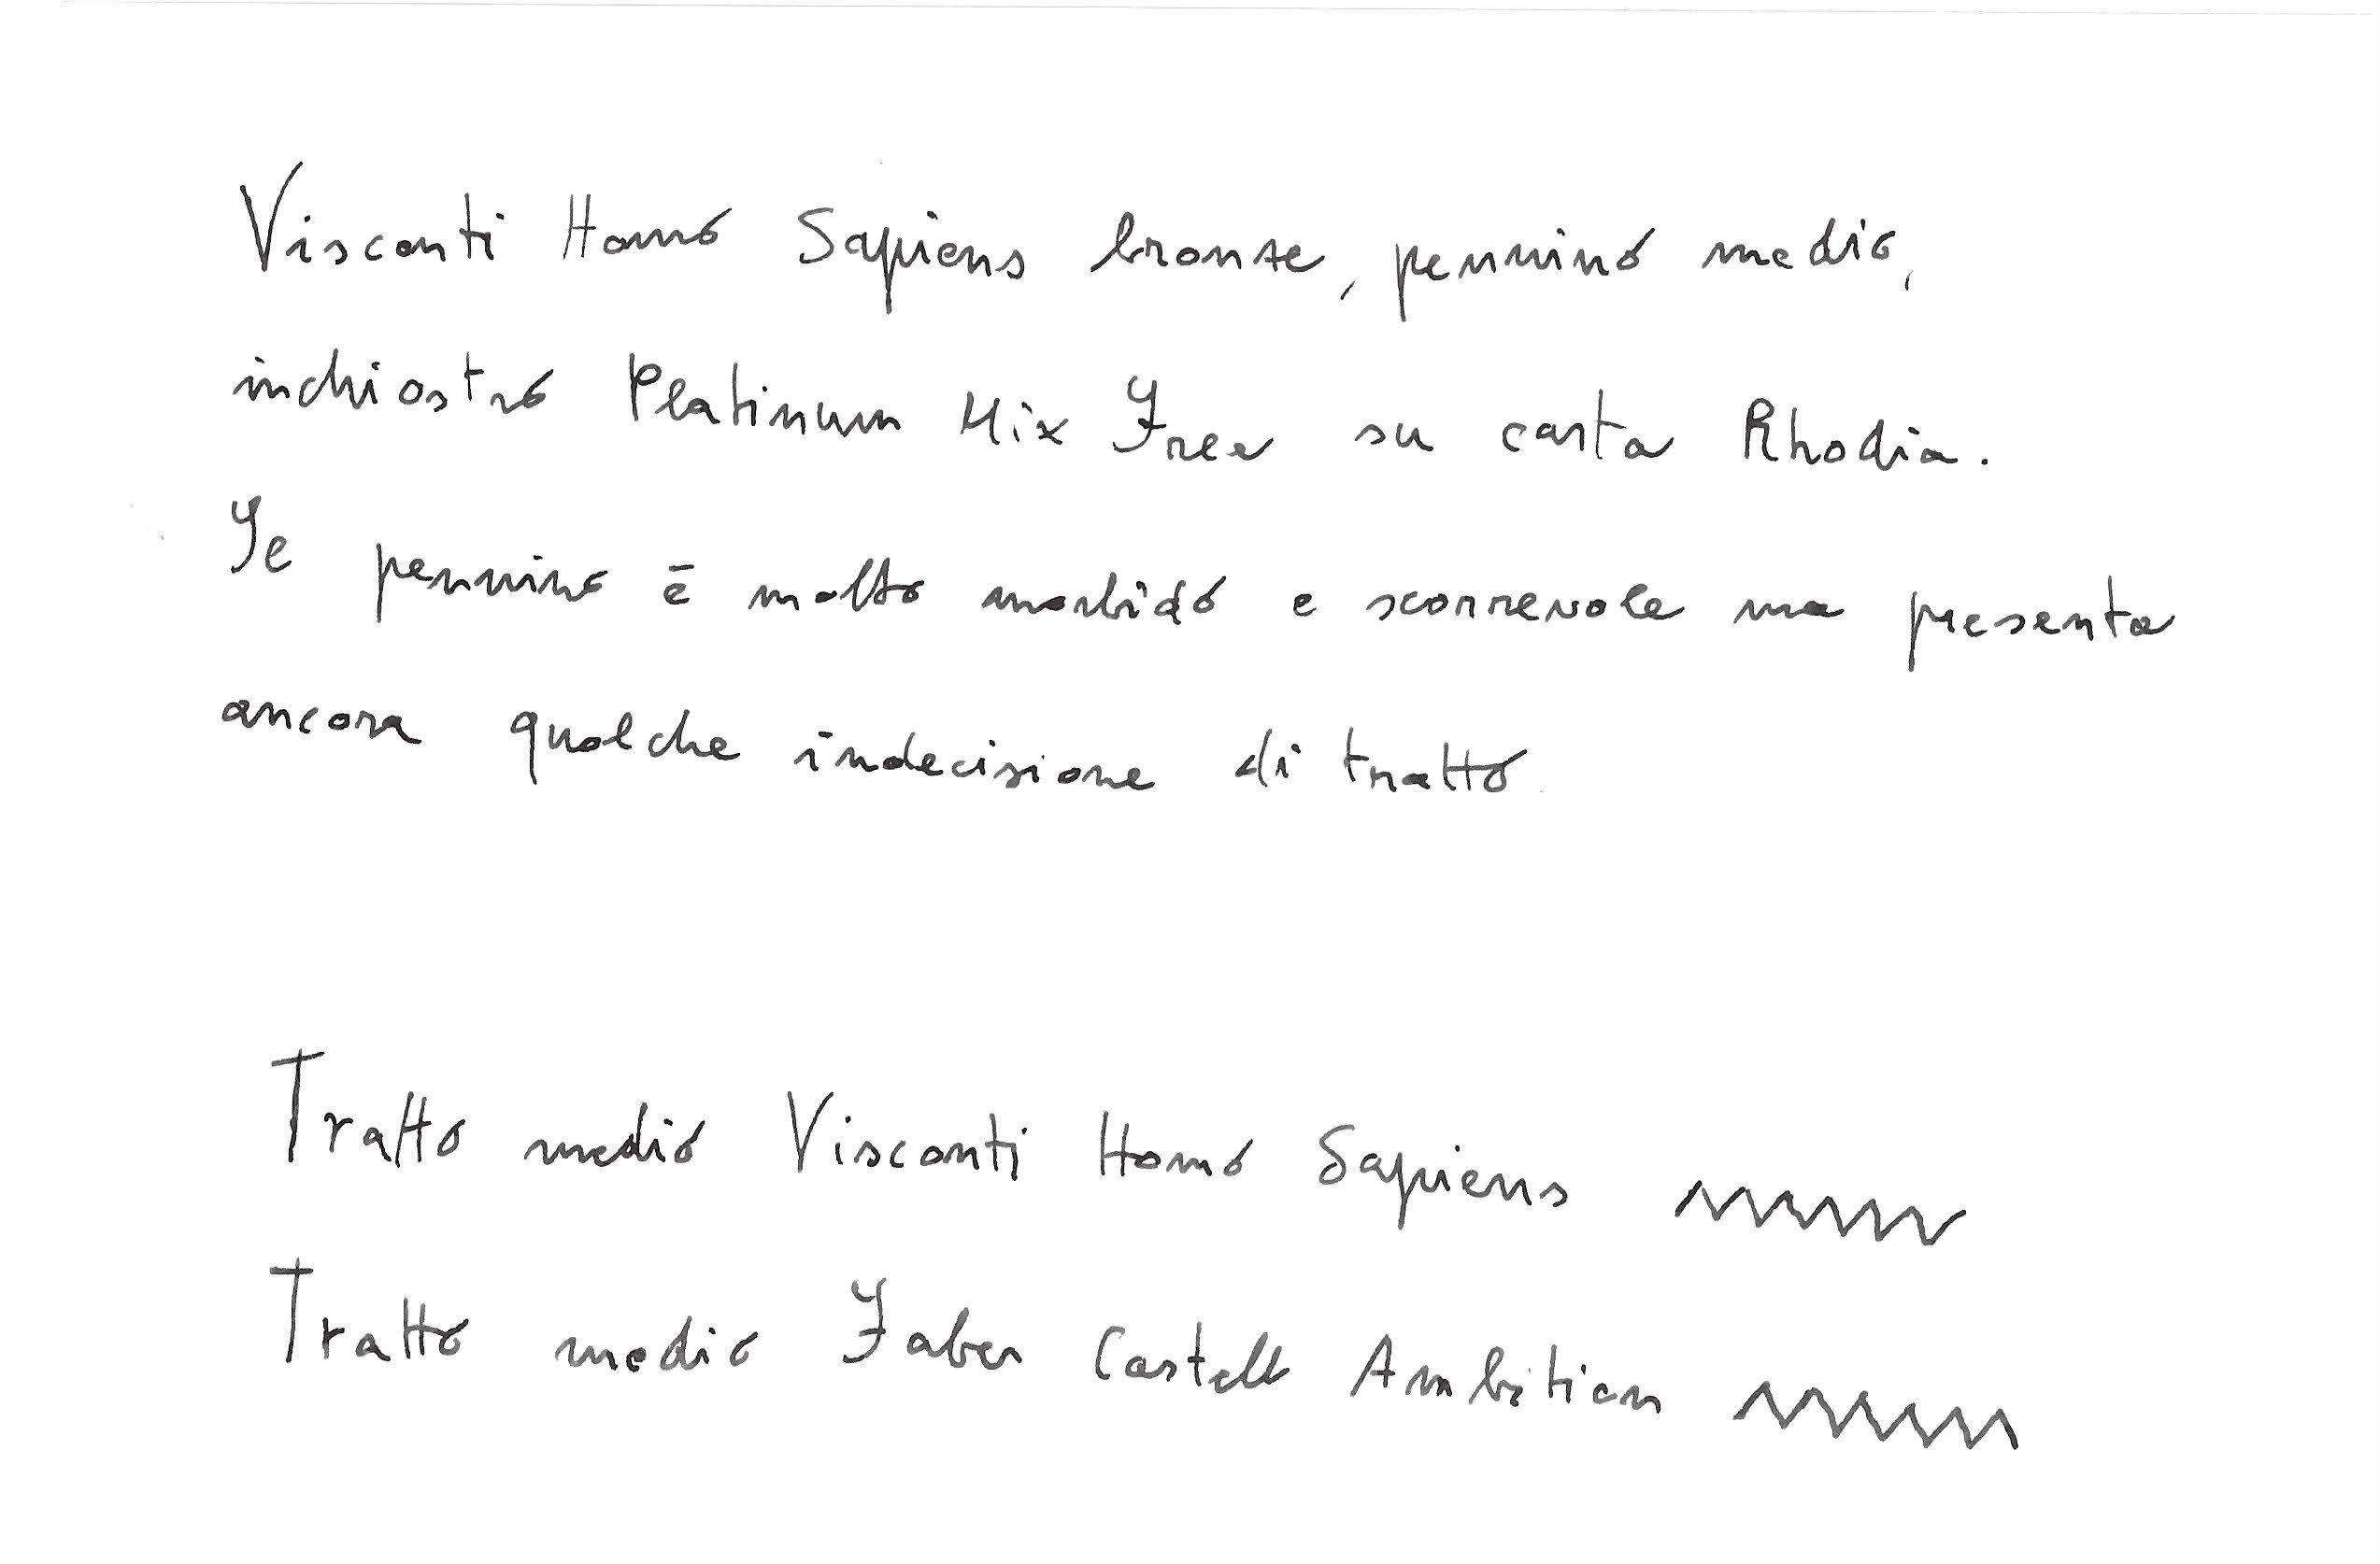 Visconti Homo Sapiens bronze, pennino medio,
inchiostro Platinum Mix Free su carta Rhodia.
Il pennino è molto morbido e scorrevole ma presenta
ancora qualche indecisione di tratto
Tratto medio Visconti Homo Sapiens
Tratto medio Faber Castell Ambition